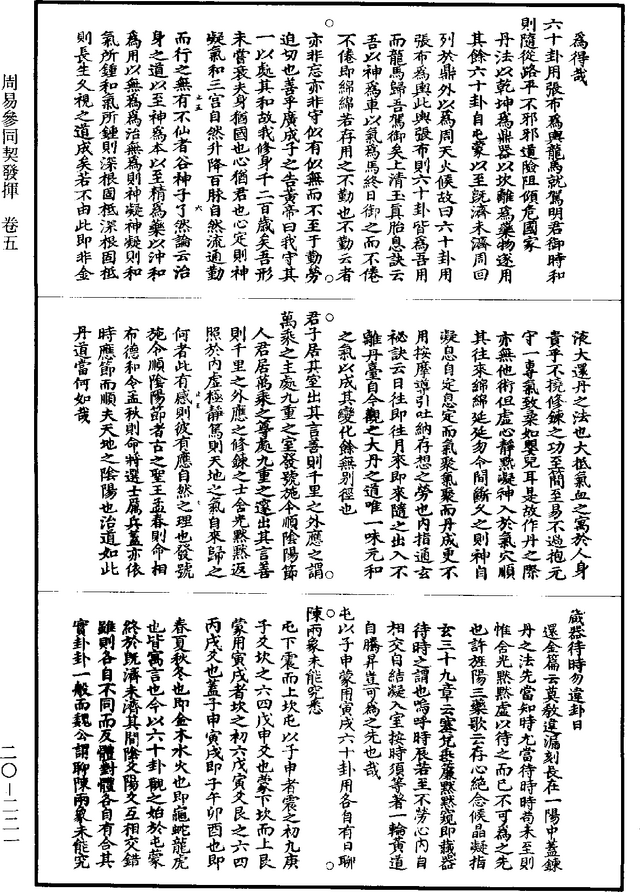 周易參同契發揮 卷五
二〇-二一一
爲得哉
六十卦用張布爲輿龍馬就駕明君御時和
則隨從路平不邪邪道險阻傾危國家
丹法以乾坤爲鼎器以坎離爲藥物遂用
其餘六十卦自屯蒙以至旣濟未濟周回
列於鼎外以爲周天火候故曰六十卦用
張布爲輿此輿張布則六十卦皆爲吾用
而龍馬歸吾駕御矣上清玉眞胎息訣云
吾以神爲車以氣爲馬終日御之而不倦
不倦即綿綿若存用之不勤也不勤云者
亦非忘亦非守似有似無而不至于勤勞
迫切也善乎廣成子之告黃帝曰我守其
一以處其和故我修身千二百歲矣吾形
未嘗衰夫身猶國也心猶君也心定則神
凝氣和三宮自然升降百脉自然流通勤
而行之無有不仙者谷神子了然論云治
身之道以至神爲本以至精爲藥以沖和
爲用以無爲爲治無爲則神凝神凝則和
氣所鍾和氣所鍾則深根固柢深根固柢
則長生久視之道成矣若不由此即非金
液大還丹之法也大抵氣血之寓於人身
貴乎不撓修鍊之功至簡至易不過抱元
守一專氣致柔如嬰兒耳是故作丹之際
亦無他術但虛心靜默凝神入於氣穴順
其往來綿綿延延勿令間斷久之則神自
凝息自定息定而氣聚氣聚而丹成更不
用按摩導引吐納存想之勞也內指通玄
秘訣云日往即往月來即來隨之出入不
離丹臺自今觀之大丹之道唯一味元和
之氣以成其變化餘無別徑也
君子居其室出其言善則千里之外應之謂
萬乘之主處九重之室發號施令順陰陽節
人君居萬乘之尊處九重之邃出其言善
則千里之外應之修鍊之士含光默默返
照於內虛極靜篤則天地之氣自來歸之
何者此有感則彼有應自然之理也發號
施令順陰陽節者古之聖王孟春則命相
布德和令孟秋則命將選士厲兵蓋亦依
時應節而順夫天地之陰陽也治道如此
丹道當何如哉
藏器待時勿違卦日
還金篇云莫教違漏刻長在一陽中蓋鍊
丹之法先當知時尤當待時時苟未至則
惟含光默默虛以待之而已不可爲之先
也許旌陽三藥歌云存心絶念候晶凝指
玄三十九章云塞兌垂簾默默窺即藏器
待時之謂也嗚呼時辰若至不勞心內自
相交自結凝入室按時須等著一輪黃道
自騰昇豈可爲之先也哉
屯以子申蒙用寅戌六十卦用各自有日聊
陳兩象未能究悉
屯下震而上坎屯以子申者震之初九庚
子爻坎之六四戊申爻也蒙下坎而上艮
蒙用寅戌者坎之初六戊寅爻艮之六四
丙戌爻也蓋子申寅戌即子午卯酉也即
春夏秋冬也即金木水火也即龜蛇龍虎
也皆寓言也今以六十卦觀之始於屯蒙
終於旣濟未濟其間陰爻陽爻互相交錯
雖則各自不同而反體對體各自有合其
實卦卦一般而魏公謂聊陳兩象未能究